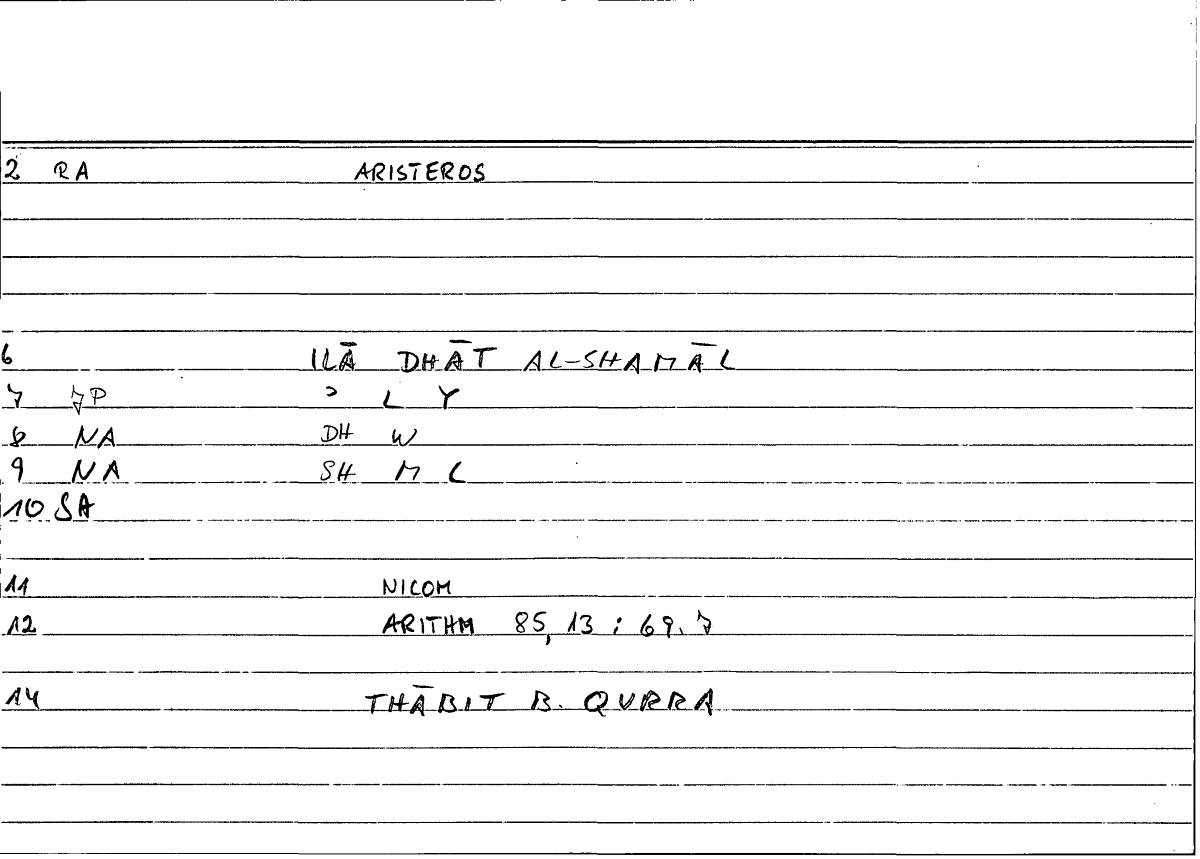 2 RA ARISTEROS
6 ILĀ DHĀT AL-SHAMĀL
7 7P ʾ L Y
8 NA DH W
9 NA SH M L
10 SA
11 NICOM
12 ARITHM 85, 13 : 69. 7
14 THĀBIT B. QURRA